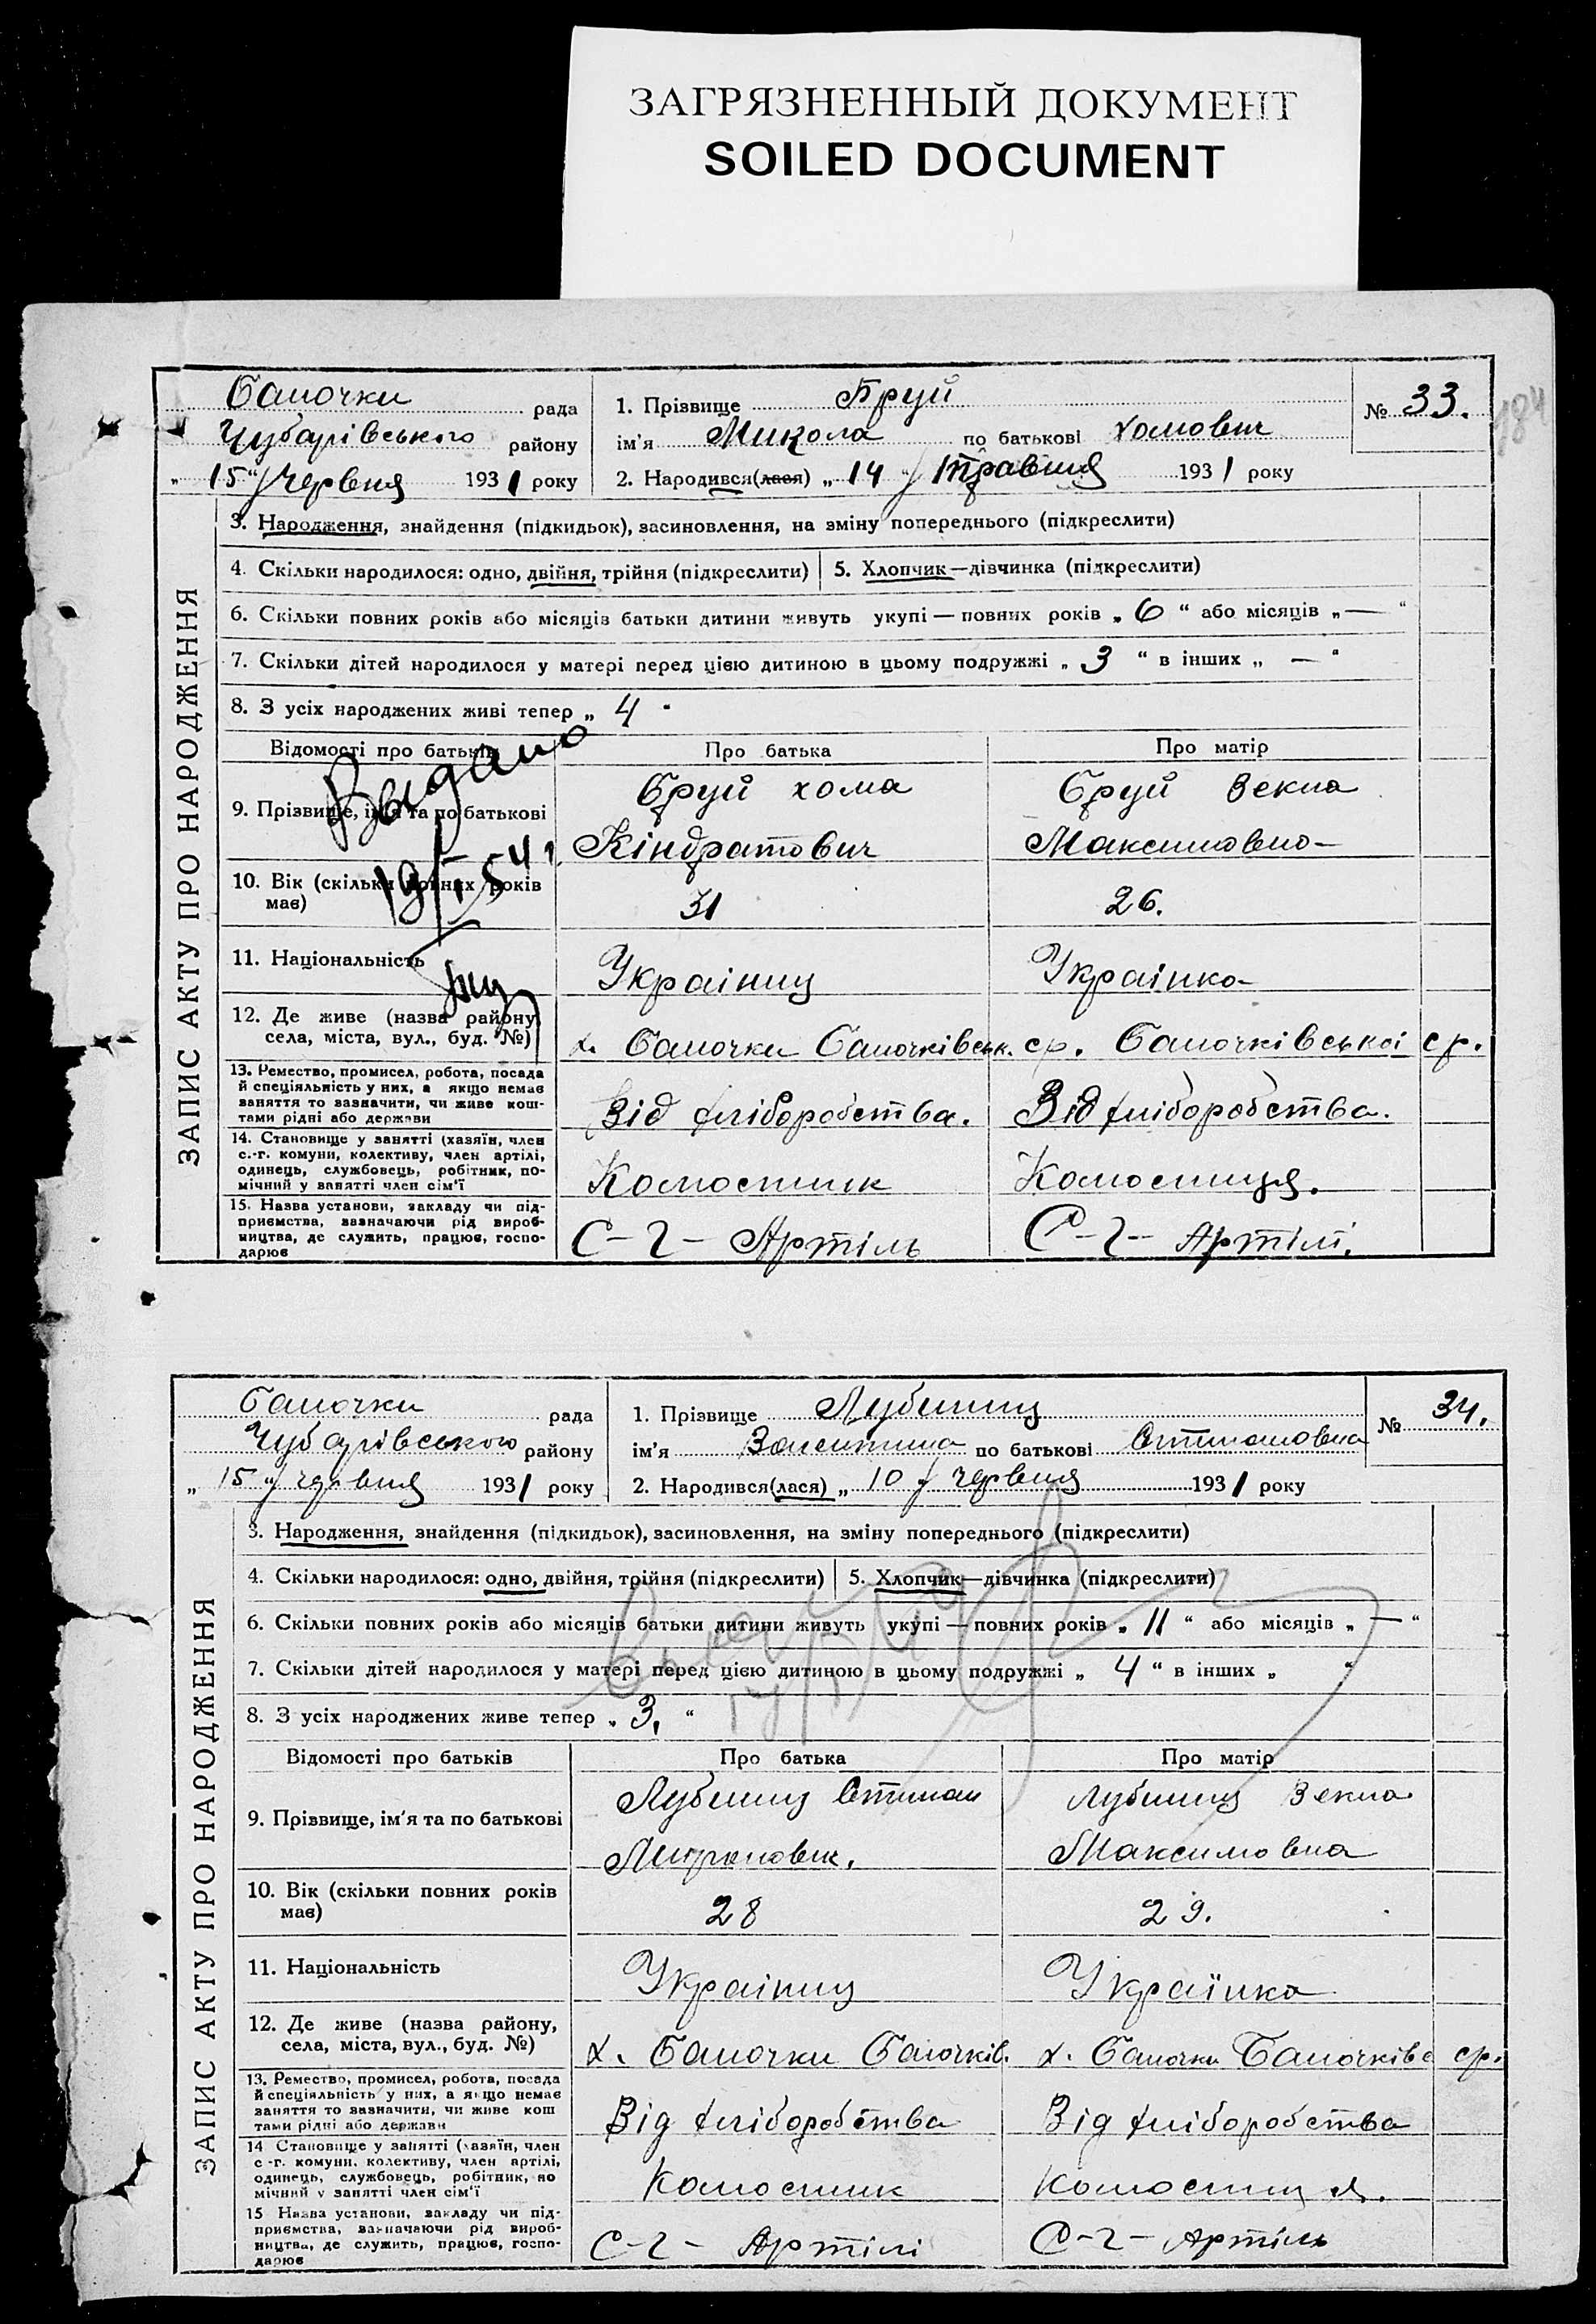 ЗАГРЯЗНЕННЫЙ ДОКУМЕНТ
SOILED DOCUMENT
184
Балочки рада
Чубарівського району
„ 15 “ Червня 1931 року
1. Прізвище Бруй
ім'я Микола по батькові Хомович
2. Народився(лася) „ 14 “ травня 1931 року
№ 33.
ЗАПИС АКТУ ПРО НАРОДЖЕННЯ
3. Народження, знайдення (підкидьок), засиновлення, на зміну попереднього (підкреслити)
4. Скільки народилося: одно, двійня, трійня (підкреслити) 5. Хлопчик—дівчинка (підкреслити)
6. Скільки повних років або місяців батьки дитини живуть укупі — повних років „ 6 “ або місяців „ — “
7. Скільки дітей народилося у матері перед цією дитиною в цьому подружжі „ 3 “ в інших „ — “
8. З усіх народжених живі тепер „ 4 “
Відомості про батьків Про батька Про матір
Выдано
9. Прізвище, ім'я та по батькові
Бруй хома
Кіндратович
Бруй Векла
Максимовна
10. Вік (скільки повних років
має)
31 26.
11. Національність Українц Українка
12. Де живе (назва району,
села, міста, вул., буд. №)
х. Балочки Балочківськ. ср. Балочківської ср.
13. Ремество, промисел, робота, посада
й спеціяльність у них, а якщо немає
заняття то зазначити, чи живе кош-
тами рідні або держави
Від хліборобства. Від хліборобства.
14. Становище у занятті (хазяїн, член
с.-г. комуни, колективу, член артілі,
одинець, службовець, робітник, по-
мічний у занятті член сім'ї
Колосник Колосниця.
15. Назва установи, закладу чи під-
приємства, зазначаючи рід вироб-
ництва, де служить, працює, госпо-
дарює
С-г- Артіль С-г- Артілі.
Балочки рада
Чубарівського району
„ 15 “ червня 1931 року
1. Прізвище Лубинц
ім'я Валентина по батькові
2. Народився(лася) „ 10 “ червня 1931 року
№ 34.
ЗАПИС АКТУ ПРО НАРОДЖЕННЯ
3. Народження, знайдення (підкидьок), засиновлення, на зміну попереднього (підкреслити)
4. Скільки народилося: одно, двійня, трійня (підкреслити) 5. Хлопчик—дівчинка (підкреслити)
6. Скільки повних років або місяців батьки дитини живуть укупі — повних років „ 11 “ або місяців „ — “
7. Скільки дітей народилося у матері перед цією дитиною в цьому подружжі „ 4 “ в інших „ “
8. З усіх народжених живе тепер „ 3. “
Відомості про батьків Про батька Про матір
9. Прізвище, ім'я та по батькові
Лубинц
Миронович.
Лубинц Векла
Максимовна
10. Вік (скільки повних років
має)
28 29.
11. Національність Українц Українка
12. Де живе (назва району,
села, міста, вул., буд. №)
х. Балочки Балочків. х. Балочки Балочківс ср.
13. Ремество, промисел, робота, посада
й спеціяльність у них, а якщо немає
заняття то зазначити, чи живе кош
тами рідні або держави
Від хліборобства Від хліборобства
14 Становище у занятті (хазяїн, член
с-г. комуни, колективу, член артілі,
одинець, службовець, робітник, по
мічний у занятті член сім'ї
Колосник Колосниця.
15 Назва установи, закладу чи під-
приємства, зазначаючи рід вироб-
ництва, де служить, працює, госпо-
дарює
С-г- Артілі С-г- Артіль